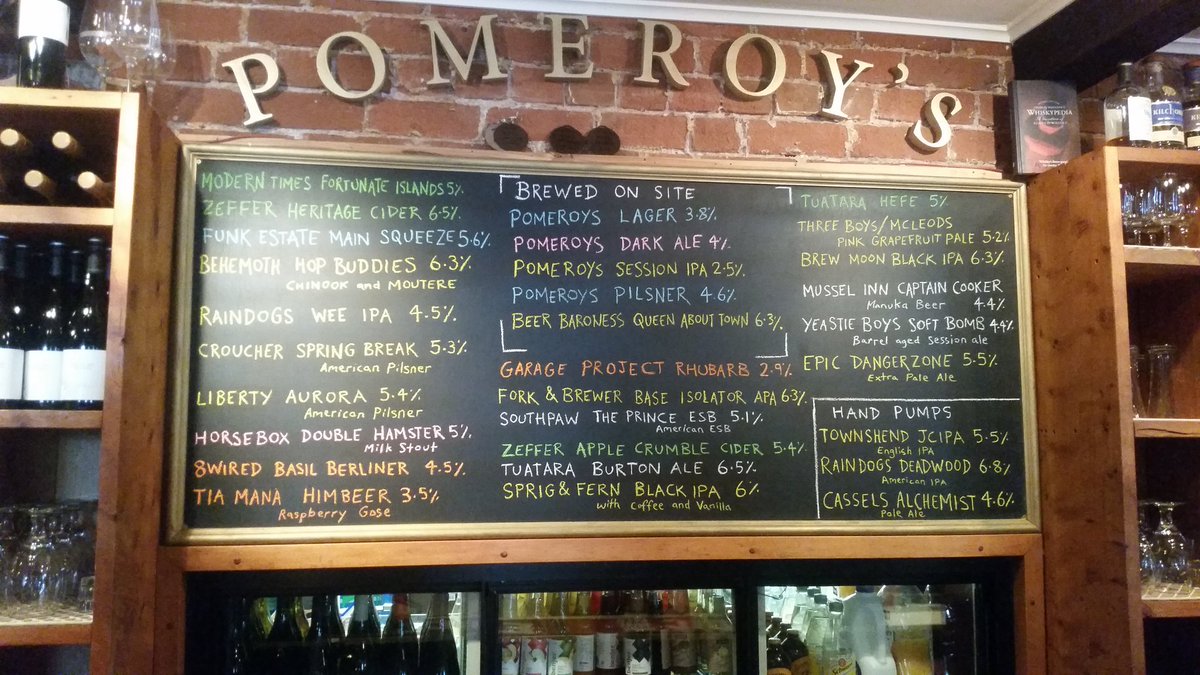 POMEROY'S
MODERN TIMES FORTUNATE ISLANDS 5%
ZEFFER HERITAGE CIDER 6.5%
FUNK ESTATE MAIN SQUEEZE 5.6%
BEHEMOTH HOP BUDDIES 6.3%
CHINOOK and MOUTERE
RAINDOGS WEE IPA 4.5%
CROUCHER SPRING BREAK 5.3%
American Pilsner
LIBERTY AURORA 5.4%
American Pilsner
HORSEBOX DOUBLE HAMSTER 5%
Milk Stout
8WIRED BASIL BERLINER 4.5%
TIA MANA HIMBEER 3.5%
Raspberry Gose
BREWED ON SITE
POMEROYS LAGER 3.8%
POMEROYS DARK ALE 4%
POMEROYS SESSION IPA 2.5%
POMEROYS PILSNER 4.6%
BEER BARONESS QUEEN ABOUT TOWN 6.3%
GARAGE PROJECT RHUBARB 2.9%
FORK & BREWER BASE ISOLATOR APA 6.3%
SOUTHPAW THE PRINCE ESB 5.1%
American ESB
ZEFFER APPLE CRUMBLE CIDER 5.4%
TUATARA BURTON ALE 6.5%
SPRIG & FERN BLACK IPA 6%
with Coffee and Vanilla
TUATARA HEFE 5%
THREE BOYS/MCLEODS
PINK GRAPEFRUIT PALE 5.2%
BREW MOON BLACK IPA 6.3%
MUSSEL INN CAPTAIN COOKER
Manuka Beer 4.4%
YEASTIE BOYS SOFT BOMB 4.4%
Barrel aged Session ale
EPIC DANGERZONE 5.5%
Extra Pale Ale
HAND PUMPS
TOWNSHEND JCIPA 5.5%
English IPA
RAINDOGS DEADWOOD 6.8%
American IPA
CASSELS ALCHEMIST 4.6%
Pale Ale
WHISKYPEDIA
KILCHOMAN